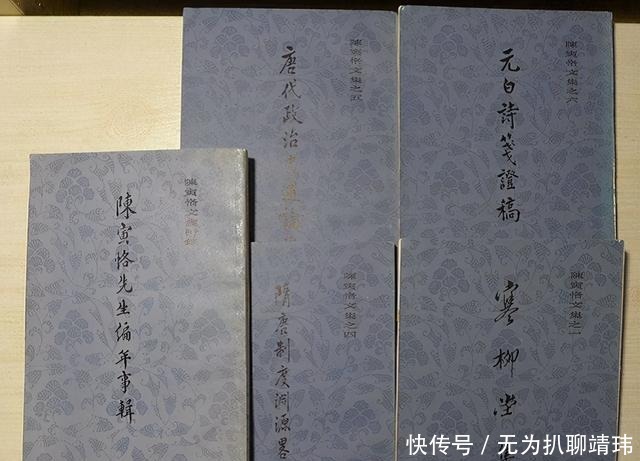 陳寅恪文集之五
唐代政治史述論
陳寅恪文集之六
元白詩箋證稿
陳寅恪文集附錄
陳寅恪先生編年事輯
陳寅恪文集之四
隋唐制度淵源畧
陳寅恪文集之一
寒柳堂集
快传号／无为扒聊靖玮